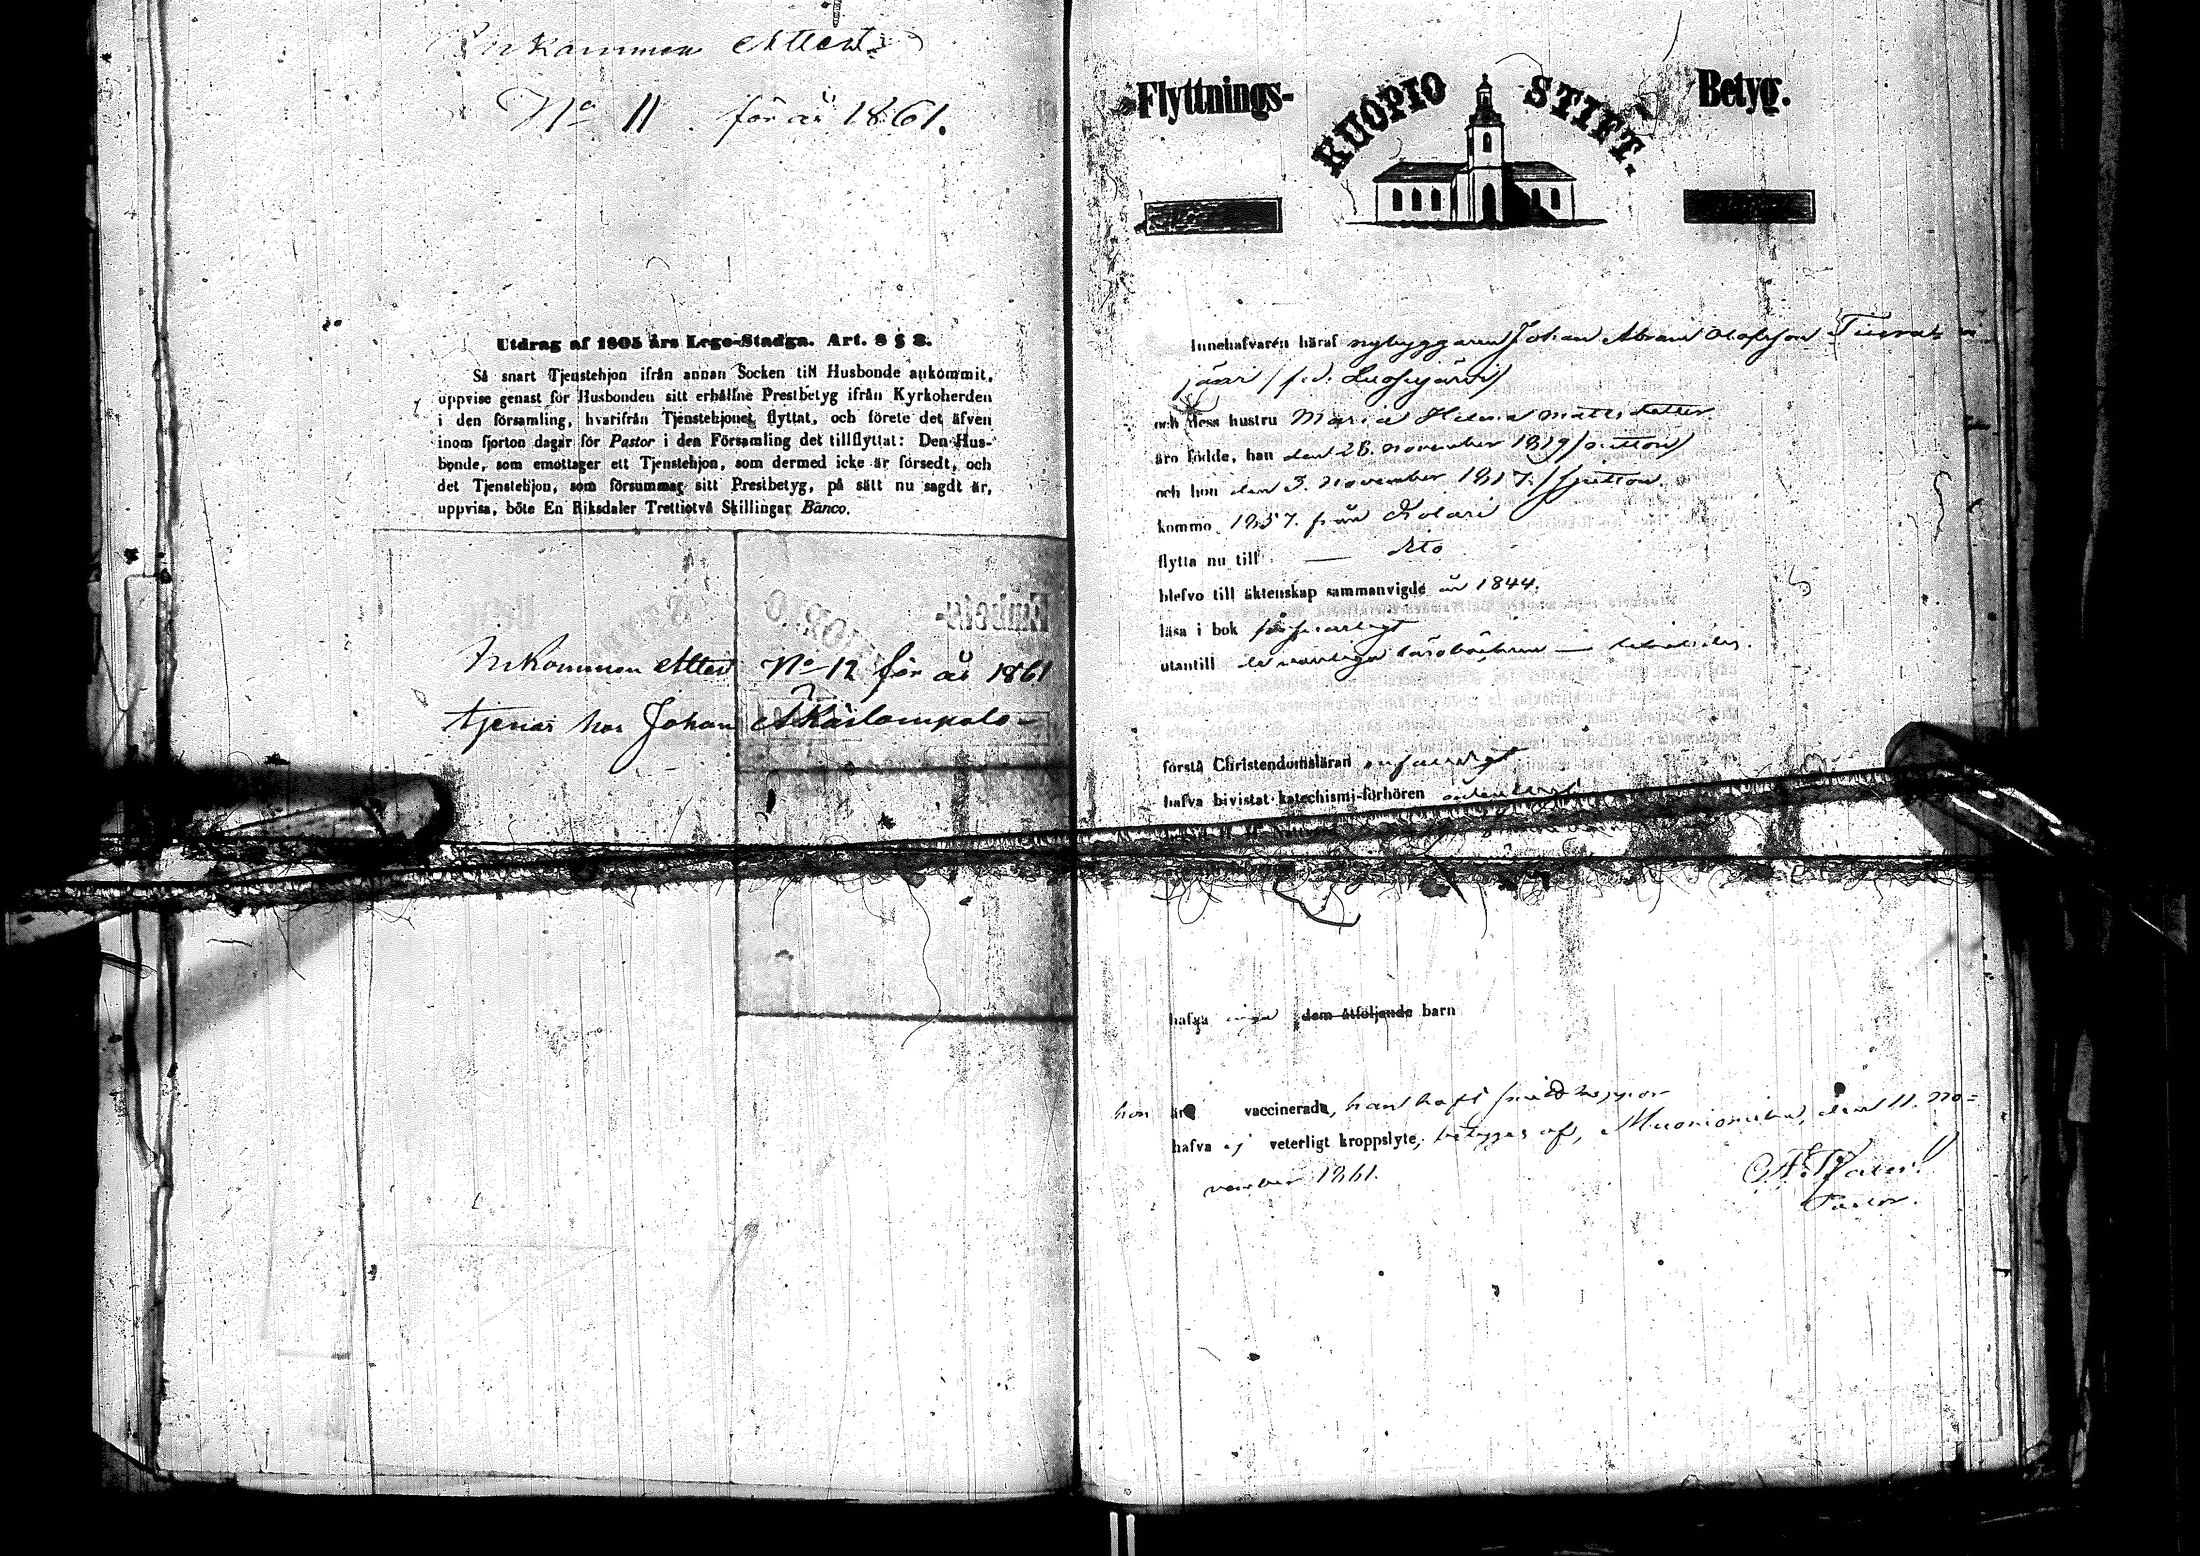 Inkommen Attest
No 11 för år 1861.
Utdrag af 1805 års Lego-Stadga. Art. 8 § 8.
Så snart Tjenstehjon ifrån annan Socken till Husbonde ankommit,
uppvise genast för Husbonden sitt erhållne Prestbetyg ifrån Kyrkoherden
i den församling, hvarifrån Tjenstehjonet flyttat, och förete det äfven
inom fjorton dagar för Pastor i den Församling det tillflyttat: Den Hus-
bonde, som emottager ett Tjenstehjon, som dermed icke är försedt, och
det Tjenstehjon, som försummar sitt Prestbetyg, på sätt nu sagdt är,
uppvisa, böte En Riksdaler Trettiotvå Skillingar Banco.
Inkommen Attest No 12 för år 1861
tjenar hos Johan Äkäslompolo-
Flyttnings- KUOPIO STIFT. Betyg.
Innehafvaren häraf nybyggaren Johan Abram Olofsson
järvi
och dess hustru Maria Helena Mattsdotter
äro födde, han den 28. november 1819
och hon den 3. november 1817.
komme 1857. från Kolari
flytta nu till —
blefvo till äktenskap sammanvigde år 1844.
läsa i bok försvarligt
utantill de vanliga läroböckerna —
förstå Christendomsläran
hafva bivistat katechismi-förhören
hafva inga dem åtföljande barn
hon är vaccinerade, han haft
hafva ej veterligt kroppslyte, betygas af, Muonioniska, den 11. no=
vember 1861.
Pastor.